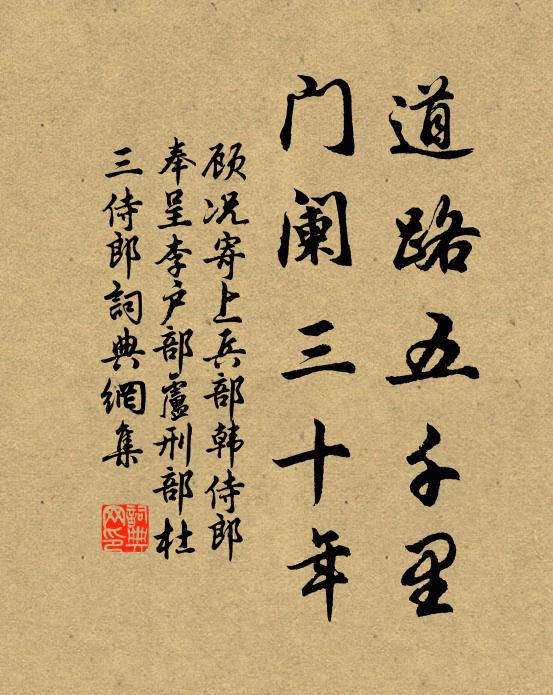 道路五千里
门阑三十年
顾况寄上兵部韩侍郎
奉呈李户部卢刑部杜
三侍郎詞典網集
詞典网印